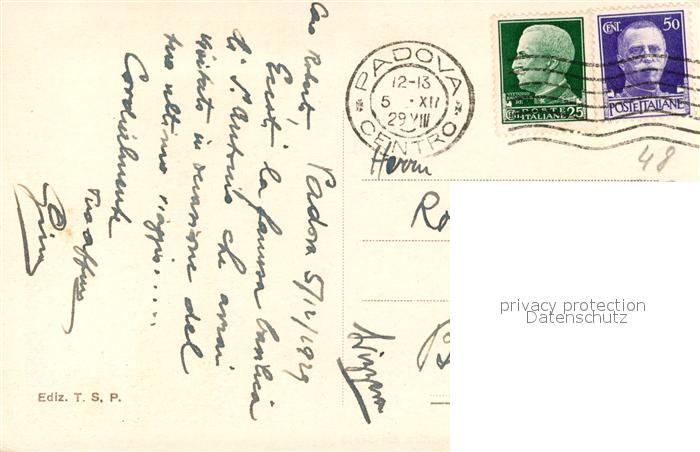 Padova 5/12/1929
Caro Robert,
Eccoti la famosa basilica
di S. Antonio che avrai
visitato in occasione del
tuo ultimo viaggio.....
Cordialmente
Tuo affmo
Ediz. T. S. P.
PADOVA
12-13
5 XII
29 VIII
CENTRO
CENT. 25
POSTE ITALIANE
CENT. 50
POSTE ITALIANE
48
Herrn
Ro
B
Svizzera
privacy protection
Datenschutz